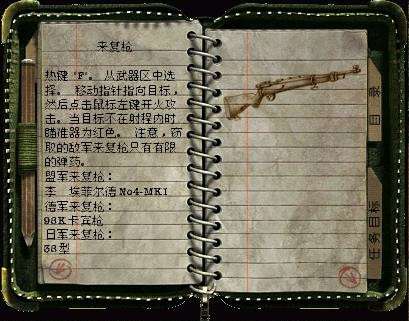 来复枪
热键“F”。从武器区中选
择。移动指针指向目标，
然后点击鼠标左键开火攻
击。当目标不在射程内时
瞄准器为红色。注意，窃
取的敌军来复枪只有有限
的弹药。
盟军来复枪：
李 埃菲尔德 No4-MK1
德军来复枪：
98K卡宾枪
日军来复枪：
38型
目录
任务目标